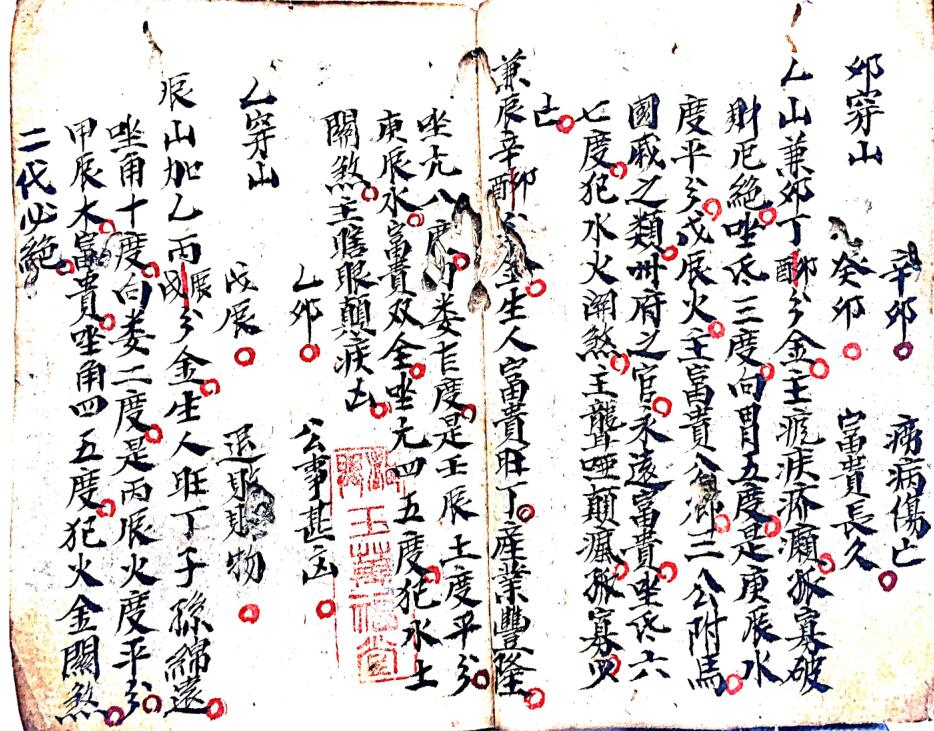 卯穿山
辛卯 癆病傷亡
癸卯 富貴長久
乙山兼卯丁卯丁酉分金主疲疾疥癩孤寡破
財厄絕坐氐三度向胃五度是庚辰水
度平分戊辰火主富貴公卿三公附馬
國戚之類州府之官永遠富貴坐氐六
七度犯水火關煞主聾啞顛瘋孤寡凶
亡
兼辰辛卯辛酉分金生人富貴旺丁產業豐隆
坐亢八度向婁七度是壬辰土度平分
庚辰水富貴双全坐亢四五度犯水土
關煞主瞎眼顛疾凶
乙卯 公事甚凶
乙穿山
戊辰 退財物
辰山加乙丙辰丙戌分金生人旺丁子孫綿遠
坐角十度向婁二度是丙辰火度平分
甲辰木富貴坐角四五度犯火金關煞
二代必絕